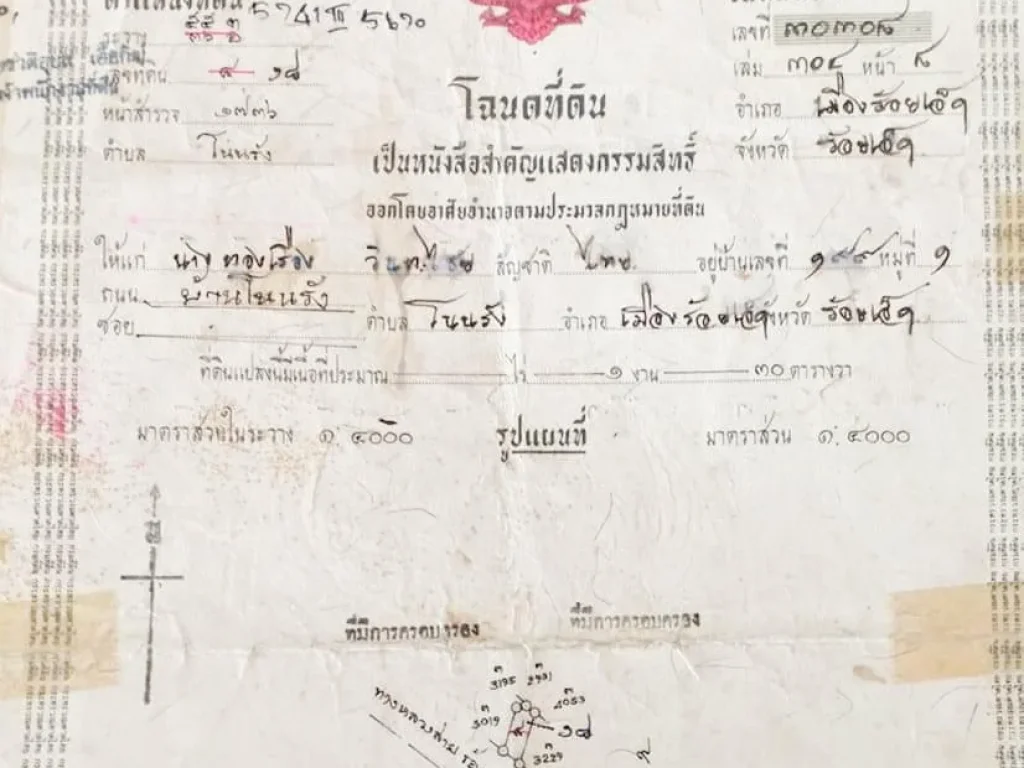 ตำแหน่งที่ดิน 5741 III 5670
ระวาง
เลขที่ดิน ๗๘
หน้าสำรวจ ๑๗๓๖
ตำบล โนนรัง
เลขที่ ๓๐๓๐๘
เล่ม ๓๐๔ หน้า ๘
อำเภอ เมืองร้อยเอ็ด
จังหวัด ร้อยเอ็ด
โฉนดที่ดิน
เป็นหนังสือสำคัญแสดงกรรมสิทธิ์
ออกโดยอาศัยอำนาจตามประมวลกฎหมายที่ดิน
ให้แก่ นาง ทองเรือง สัญชาติ ไทย อยู่บ้านเลขที่ ๑๙๙ หมู่ที่ ๑
ถนน บ้านโนนรัง
ซอย ตำบล โนนรัง อำเภอ เมืองร้อยเอ็ด จังหวัด ร้อยเอ็ด
ที่ดินแปลงนี้มีเนื้อที่ประมาณ ไร่ ๑ งาน ๓๐ ตารางวา
มาตราส่วนในระวาง ๑:๔๐๐๐ รูปแผนที่ มาตราส่วน ๑:๔๐๐๐
ที่มีการครอบครอง ที่มีการครอบครอง
3195 2931
5019 4053
๗๘
3229
ทางหลวงสาย